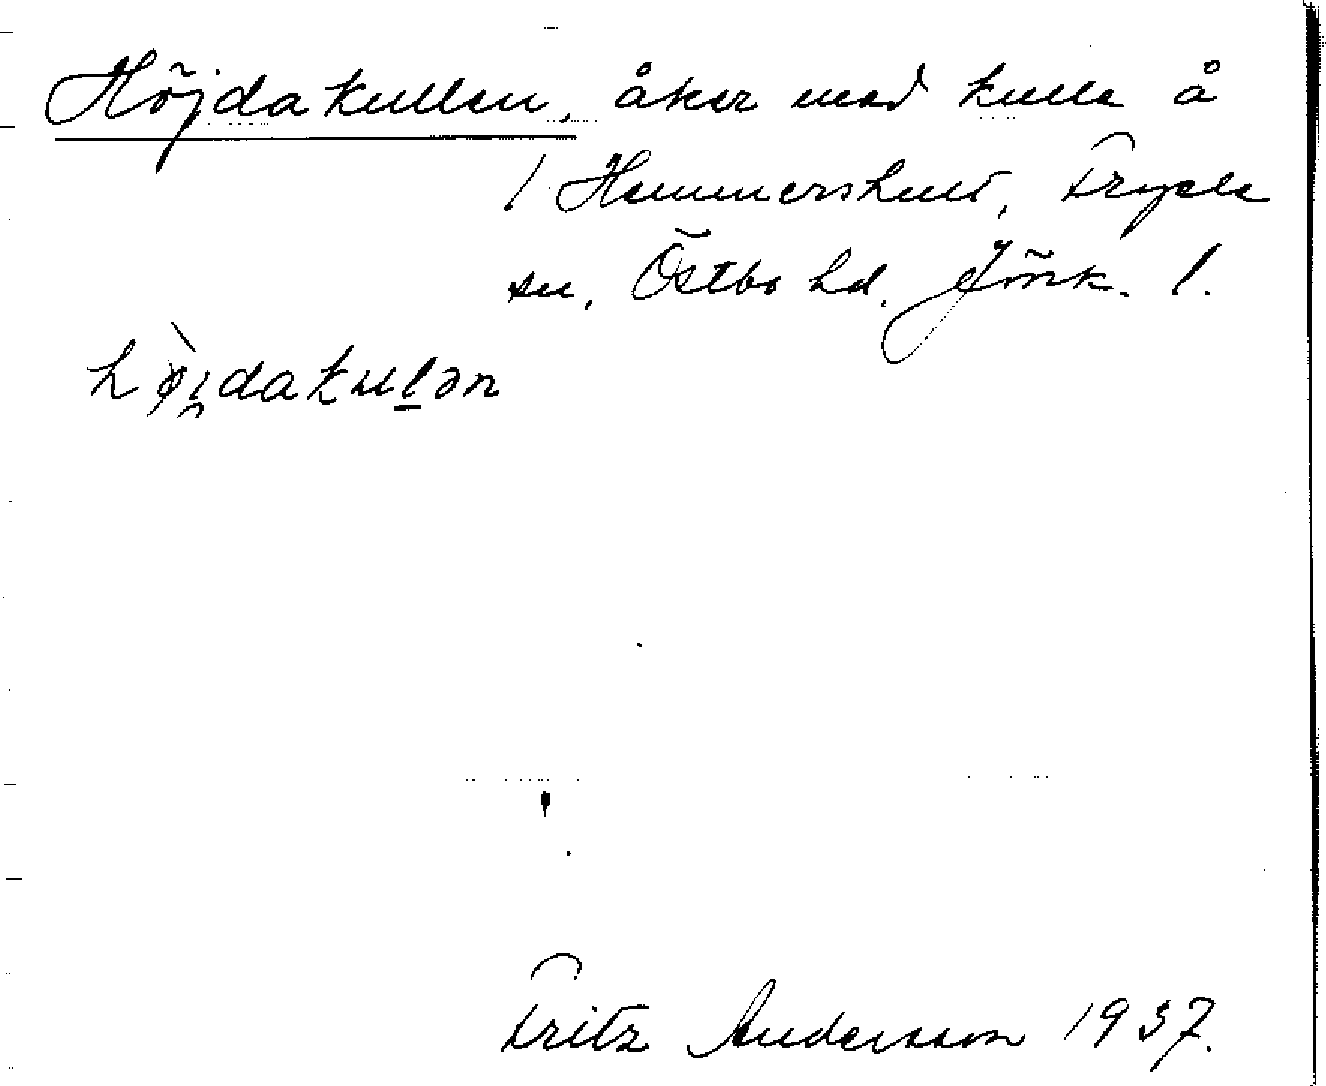 Höjdakullen, åker med kulle å
/ Hammershult, Fryele
sn, Östbo hd. Jönk. l.
hø̀i̯daku̲lən
Fritz Andersson 1937.